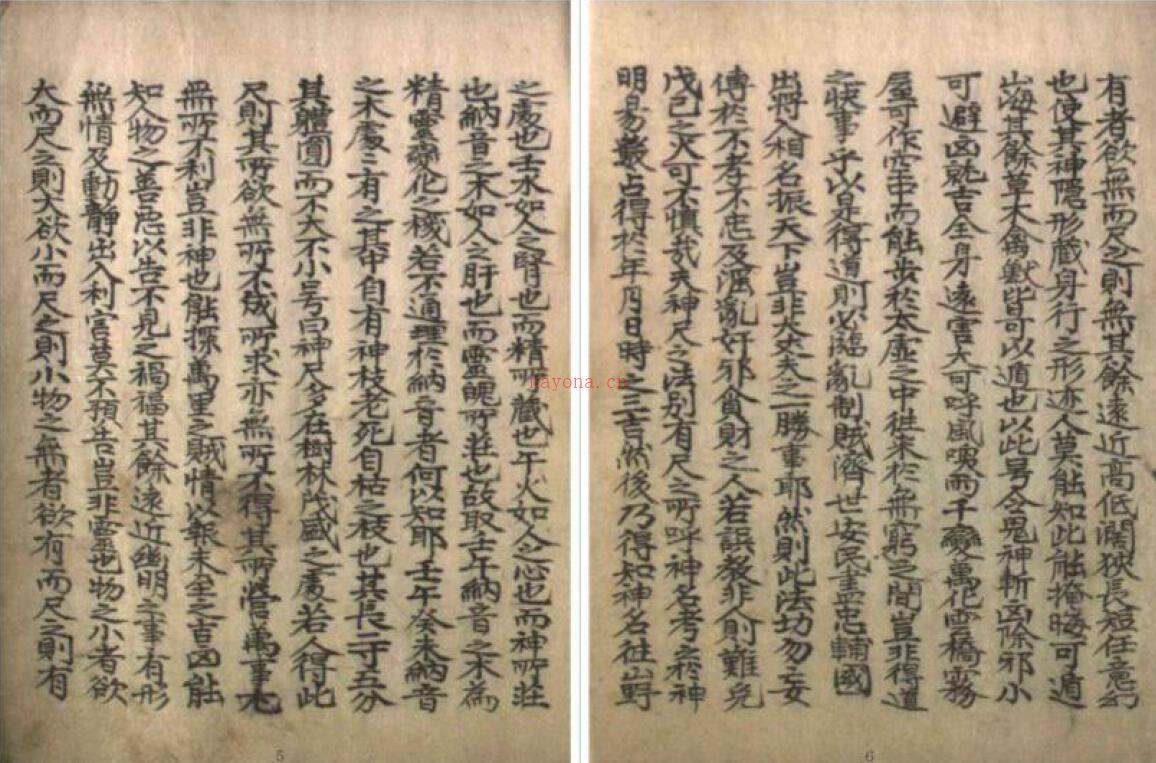 之處也壬水如人之腎也而精所藏也午火如人之心也而神所莊
也納音之木如人之肝也而靈魄所莊也故取壬午納音之木為
精靈變化之機若不通理於納音者何以知耶壬午癸未納音
之木處〻有之其中自有神枝老死自枯之枝也其長二寸五分
其體圓而不大不小号曰神尺多在樹林茂盛之處若人得此
尺則其所欲無所不成所求亦無所不得其所營萬事尤
無所不利豈非神也能探萬里之賊情以報未至之吉凶能
知人物之善惡以告不見之禍福其餘遠近幽明之事有形
無情及動靜出入利害莫不預告豈非靈也物之小者欲
大而尺之則大欲小而尺之則小物之無者欲有而尺之則有
5
有者欲無而尺之則無其餘遠近高低闊狹長短任意幻
也使其神隱形藏身行之形迹人莫能知此能掩晦可遁
山海其餘草木禽獸皆可以遁也以此号令鬼神斬凶除邪小
可避凶就吉全身遠害大可呼風喚雨千變萬化雲橋霧
屋可作空中而能步於太虛之中徃来於無窮之間豈非得道
之快事乎以是得道則必臨亂制賊濟世安民盡忠輔國
出將入相名振天下豈非大丈夫之一勝事耶然則此法切勿妄
傳於不孝不忠及淫亂奸邪貪財之人若誤發非人則難免
戊己之火可不慎哉夫神尺之法別有尺之所呼神名考之於神
明易數占得於年月日時之三吉然後乃得知神名徃山野
6
nayona.cn